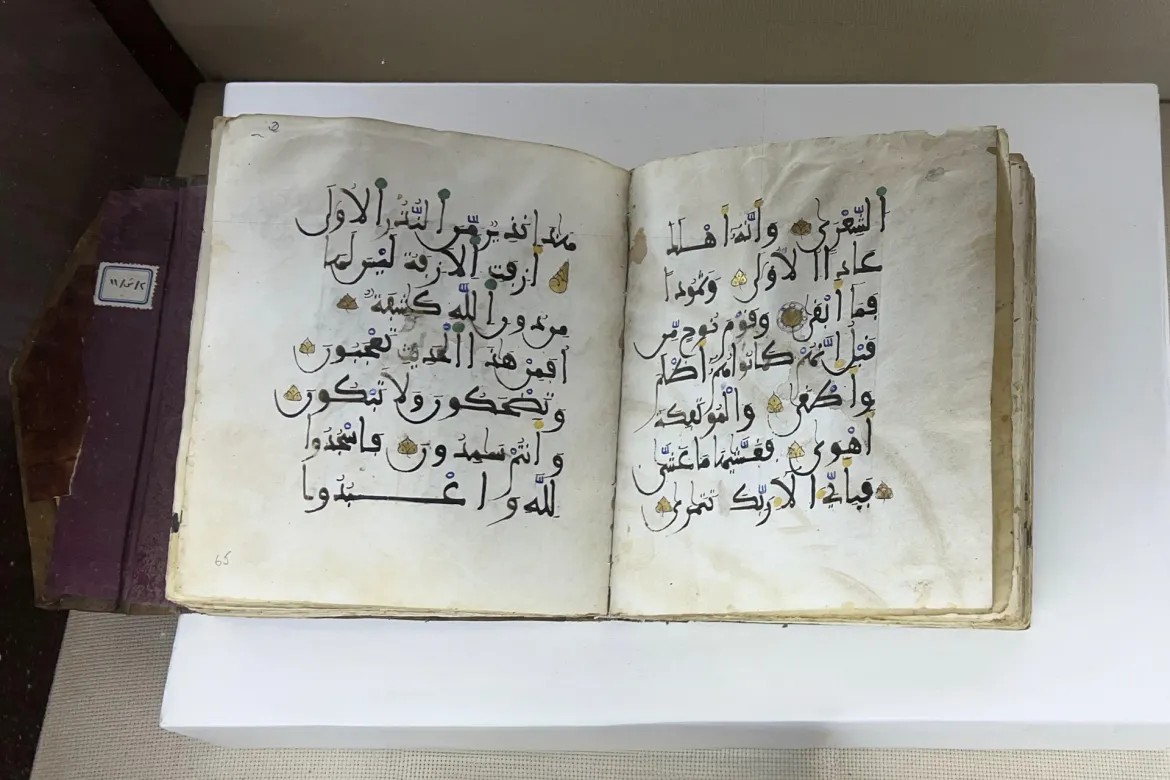 الشِّعْرَى وَأَنَّهُ أَهْلَكَ
عَادًا الاُولَى وَثَمُودًا
فَمَا أَبْقَى وَقَوْمَ نُوحٍ مِّن
قَبْلُ إِنَّهُمْ كَانُوا هُمُ أَظْلَمَ
وَأَطْغَى وَالْمُوتَفِكَةَ
أَهْوَى فَغَشَّيهَا مَا غَشَّى
فَبِأَيِّ ءَالَاءِ رَبِّكَ تَتَمَرَى
هَذَا نَذِيرٌ مِّنَ النُّذُرِ الاُولَى
أَزِفَتِ الاَزِفَةُ لَيْسَ لَهَا
مِن دُونِ اللَّهِ كَشِفَةٌ
أَفَمِنْ هَذَا الْحَدِيثِ تَعْجَبُونَ
وَتَضْحَكُونَ وَلَا تَبْكُونَ
وَأَنتُمْ سَمِدُونَ فَاسْجُدُوا
لِلَّهِ وَاعْبُدُوا
65